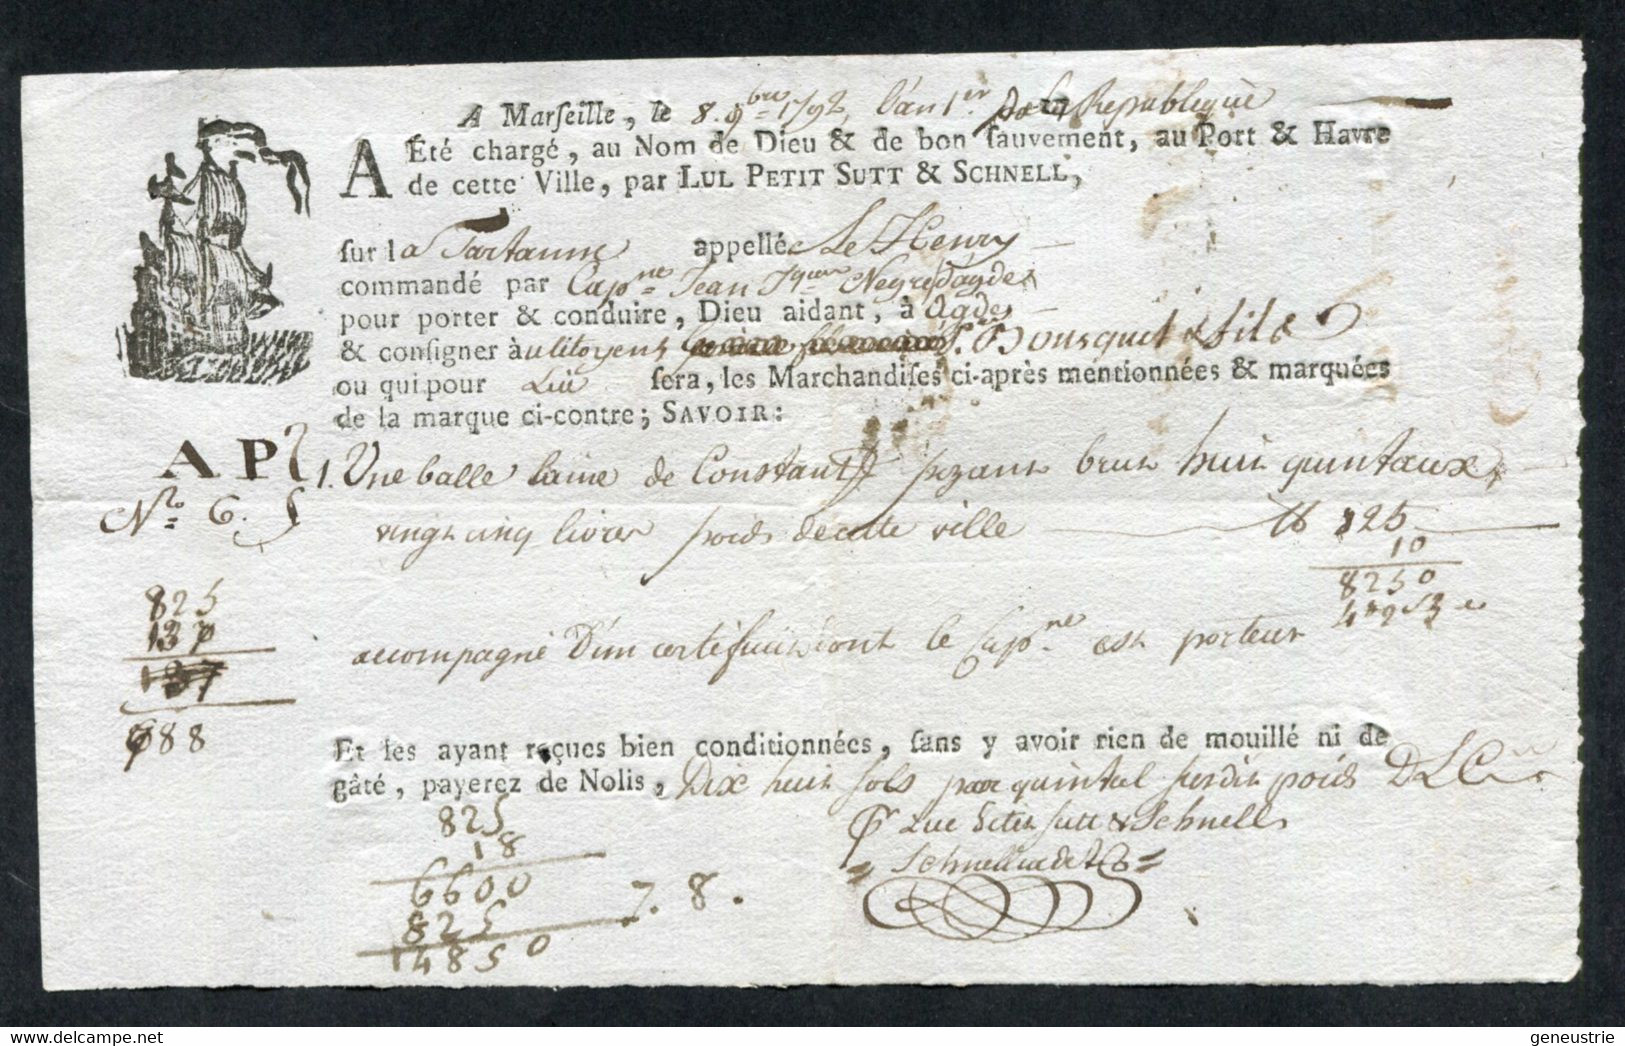 A Marſeille, le 8. 9bre 1792, l'an 1er. de la Republique
A Été chargé, au Nom de Dieu & de bon ſauvement, au Port & Havre
de cette Ville, par LUL PETIT SUTT & SCHNELL,
ſur la Tartanne appellé Le Henry
commandé par Capne Jean Negre d'agde
pour porter & conduire, Dieu aidant, à Agde
& conſigner aux Citoyens Bousquet & fils
ou qui pour Lui ſera, les Marchandiſes ci-après mentionnées & marquées
de la marque ci-contre; SAVOIR:
A P 1. Une balle laine de Constant pezant brut huit quintaux
No 6. vingt cinq livres poids de cette ville 825
10
8250
825
137
137
688
accompagné D'un certificat dont le Capne est porteur
Et les ayant reçues bien conditionnées, ſans y avoir rien de mouillé ni de
gâté, payerez de Nolis, Dix huit sols par quintal susdit poids
825
18
6600
825
14850
7. 8.
Lul Petit Sutt & Schnell
geneustrie